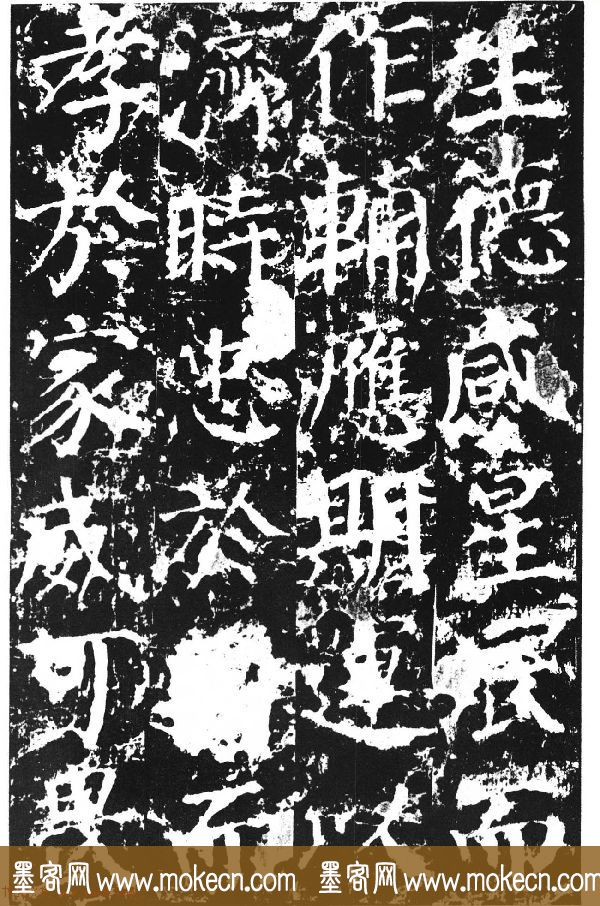 生德感星辰而
作輔應期運以
濟時忠於而
孝於家威可畏
墨客网 www.mokecn.com 墨客网 www.mokecn.com